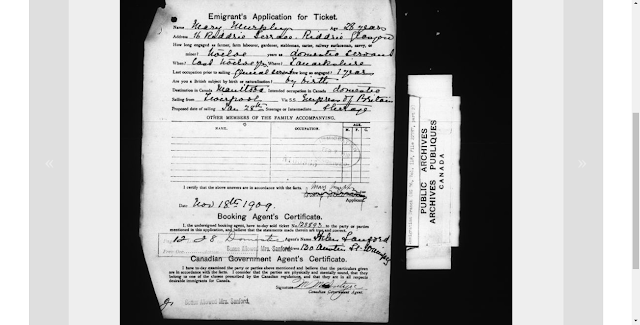 Emigrant's Application for Ticket.
Name Mary Murphy Age 28 years
Address 16 Riddrie Terrace, Riddrie Glasgow
How long engaged as farmer, farm labourer, gardener, stableman, carter, railway surfaceman, navvy, or
miner? years as domestic Servant
When? Where? Lanarkshire
Last occupation prior to sailing General servant how long so engaged? 1 year
Are you a British subject by birth or naturalization? by birth
Destination in Canada Manitoba Intended occupation in Canada domestic
Sailing from Liverpool Via S.S. Empress of Britain
Proposed date of sailing Steerage or Intermediate Steerage
OTHER MEMBERS OF THE FAMILY ACCOMPANYING.
NAME. OCCUPATION. AGE.
M. F. C.
I certify that the above answers are in accordance with the facts. Mary Murphy
Applicant.
Date Nov 18th 1909.
Booking Agent's Certificate.
I, the undersigned booking agent, have to-day sold ticket No. to the party or parties
mentioned in this application, and believe that the statements made therein are true and correct.
Agent's Name Helen Sanford
Bonus Allowed Mrs. Sanford. 130 Austin St. Winnipeg
Canadian Government Agent's Certificate.
I have to-day examined the party or parties above mentioned and believe that the particulars given
are in accordance with the facts. I consider that the parties are physically and mentally sound, that they
belong to one of the classes prescribed by the Canadian regulations, and that they are in all respects
desirable immigrants for Canada.
Signature
Canadian Government Agent.
Bonus Allowed Mrs. Sanford.
PUBLIC ARCHIVES
ARCHIVES PUBLIQUES
CANADA